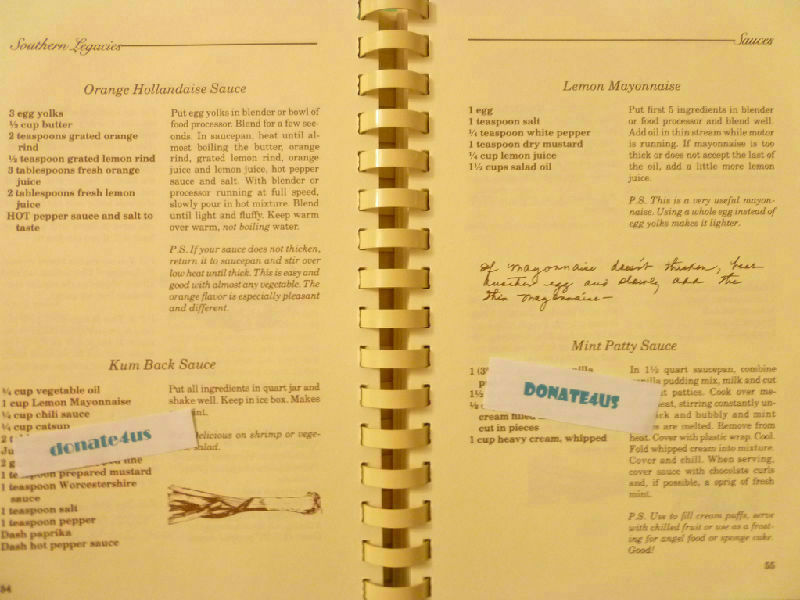 Southern Legacies
Orange Hollandaise Sauce
3 egg yolks
½ cup butter
2 teaspoons grated orange
rind
½ teaspoon grated lemon rind
3 tablespoons fresh orange
juice
2 tablespoons fresh lemon
juice
HOT pepper sauce and salt to
taste
Put egg yolks in blender or bowl of
food processor. Blend for a few sec-
onds. In saucepan, heat until al-
most boiling the butter, orange
rind, grated lemon rind, orange
juice and lemon juice, hot pepper
sauce and salt. With blender or
processor running at full speed,
slowly pour in hot mixture. Blend
until light and fluffy. Keep warm
over warm, not boiling water.
P.S. If your sauce does not thicken,
return it to saucepan and stir over
low heat until thick. This is easy and
good with almost any vegetable. The
orange flavor is especially pleasant
and different.
Kum Back Sauce
¼ cup vegetable oil
1 cup Lemon Mayonnaise
¼ cup chili sauce
¼ cup catsup
2
Ju
2
1 prepared mustard
1 teaspoon Worcestershire
sauce
1 teaspoon salt
1 teaspoon pepper
Dash paprika
Dash hot pepper sauce
Put all ingredients in quart jar and
shake well. Keep in ice box. Makes
delicious on shrimp or vege-
salad.
donate4us
Sauces
Lemon Mayonnaise
1 egg
1 teaspoon salt
¼ teaspoon white pepper
1 teaspoon dry mustard
¼ cup lemon juice
1½ cups salad oil
Put first 5 ingredients in blender
or food processor and blend well.
Add oil in thin stream while motor
is running. If mayonnaise is too
thick or does not accept the last of
the oil, add a little more lemon
juice.
P.S. This is a very useful mayon-
naise. Using a whole egg instead of
egg yolks makes it lighter.
If mayonnaise doesn't thicken, beat
another egg and slowly add the
thin mayonnaise—
Mint Patty Sauce
1
1½
½
cream filled
cut in pieces
1 cup heavy cream, whipped
In 1½ quart saucepan, combine
vanilla pudding mix, milk and cut
patties. Cook over me-
heat, stirring constantly un-
thick and bubbly and mint
are melted. Remove from
heat. Cover with plastic wrap. Cool.
Fold whipped cream into mixture.
Cover and chill. When serving,
cover sauce with chocolate curls
and, if possible, a sprig of fresh
mint.
P.S. Use to fill cream puffs, serve
with chilled fruit or use as a frost-
ing for angel food or sponge cake.
Good!
DONATE4US
54
55